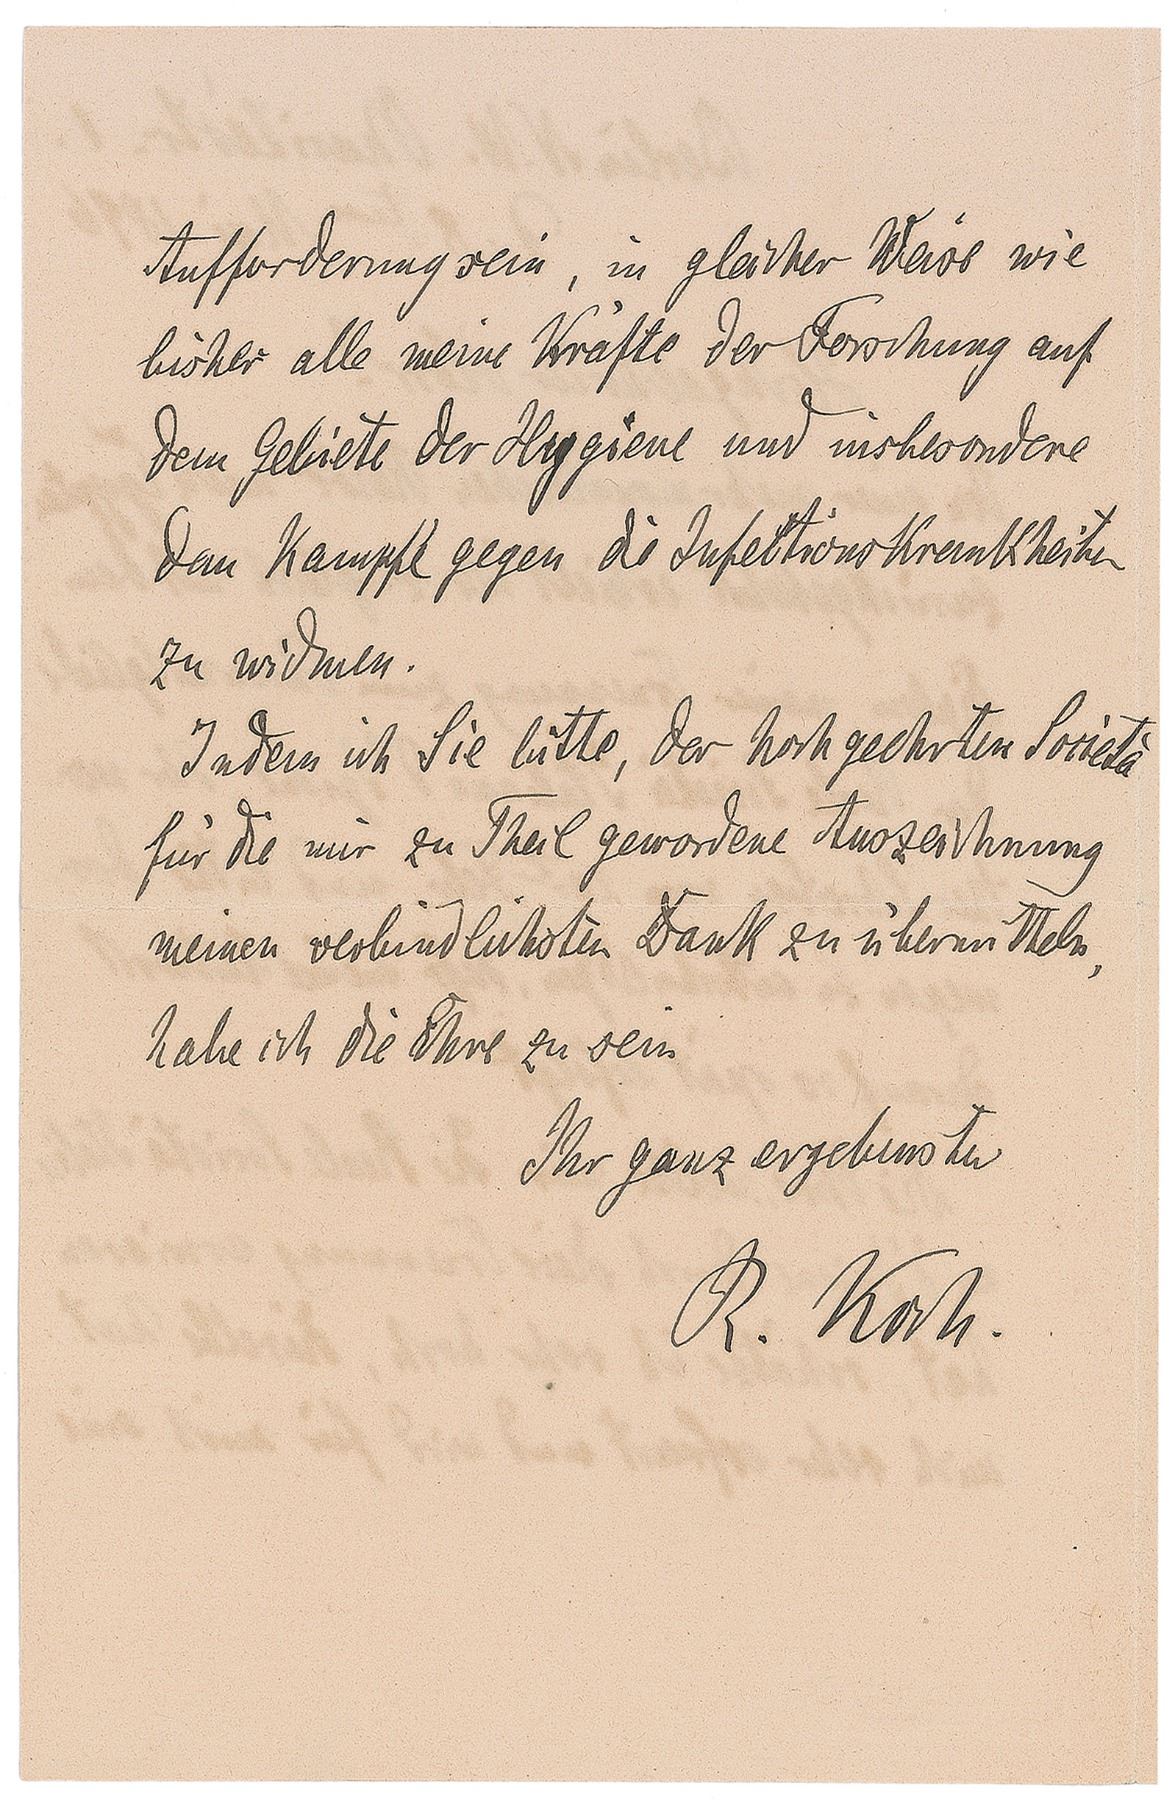 Aufforderung sein, in gleicher Weise wie
bisher alle meine Kräfte der Forschung auf
dem Gebiete der Hygiene und insbesondere
dem Kampfe gegen die Infektionskrankheiten
zu widmen.
Indem ich Sie bitte, der hochgeehrten Società
für die mir zu Theil gewordene Auszeichnung
meinen verbindlichsten Dank zu übermitteln,
habe ich die Ehre zu sein
Ihr ganz ergebenster
R. Koch.